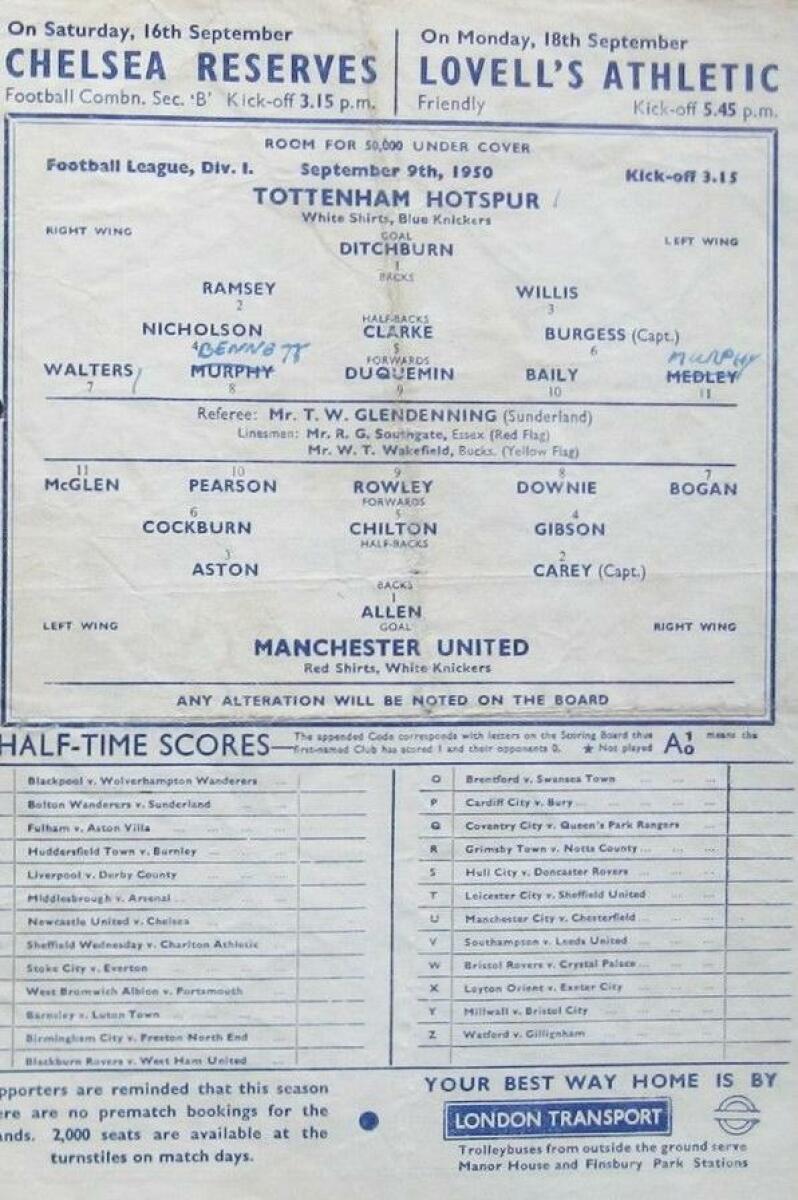 On Saturday, 16th September
CHELSEA RESERVES
Football Combn. Sec. 'B' Kick-off 3.15 p.m.
On Monday, 18th September
LOVELL'S ATHLETIC
Friendly Kick-off 5.45 p.m.
ROOM FOR 50,000 UNDER COVER
Football League, Div. I. September 9th, 1950 Kick-off 3.15
TOTTENHAM HOTSPUR
White Shirts, Blue Knickers
RIGHT WING GOAL LEFT WING
DITCHBURN
1
BACKS
RAMSEY WILLIS
2 3
HALF-BACKS
NICHOLSON CLARKE BURGESS (Capt.)
4 5 6
BENNETT MURPHY
FORWARDS
WALTERS MURPHY DUQUEMIN BAILY MEDLEY
7 8 9 10 11
Referee: Mr. T. W. GLENDENNING (Sunderland)
Linesmen: Mr. R. G. Southgate, Essex (Red Flag)
Mr. W. T. Wakefield, Bucks. (Yellow Flag)
11 10 9 8 7
McGLEN PEARSON ROWLEY DOWNIE BOGAN
FORWARDS
6 5 4
COCKBURN CHILTON GIBSON
HALF-BACKS
3 2
ASTON CAREY (Capt.)
BACKS
1
ALLEN
LEFT WING GOAL RIGHT WING
MANCHESTER UNITED
Red Shirts, White Knickers
ANY ALTERATION WILL BE NOTED ON THE BOARD
HALF-TIME SCORES—The appended Code corresponds with letters on the Scoring Board thus A 1 0 means the
first-named Club has scored 1 and their opponents 0. ★ Not played
Blackpool v. Wolverhampton Wanderers
Bolton Wanderers v. Sunderland
Fulham v. Aston Villa
Huddersfield Town v. Burnley
Liverpool v. Derby County
Middlesbrough v. Arsenal
Newcastle United v. Chelsea
Sheffield Wednesday v. Charlton Athletic
Stoke City v. Everton
West Bromwich Albion v. Portsmouth
Barnsley v. Luton Town
Birmingham City v. Preston North End
Blackburn Rovers v. West Ham United
O Brentford v. Swansea Town
P Cardiff City v. Bury
Q Coventry City v. Queen's Park Rangers
R Grimsby Town v. Notts County
S Hull City v. Doncaster Rovers
T Leicester City v. Sheffield United
U Manchester City v. Chesterfield
V Southampton v. Leeds United
W Bristol Rovers v. Crystal Palace
X Leyton Orient v. Exeter City
Y Millwall v. Bristol City
Z Watford v. Gillignham
pporters are reminded that this season
ere are no prematch bookings for the
nds. 2,000 seats are available at the
turnstiles on match days.
YOUR BEST WAY HOME IS BY
LONDON TRANSPORT
Trolleybuses from outside the ground serve
Manor House and Finsbury Park Stations